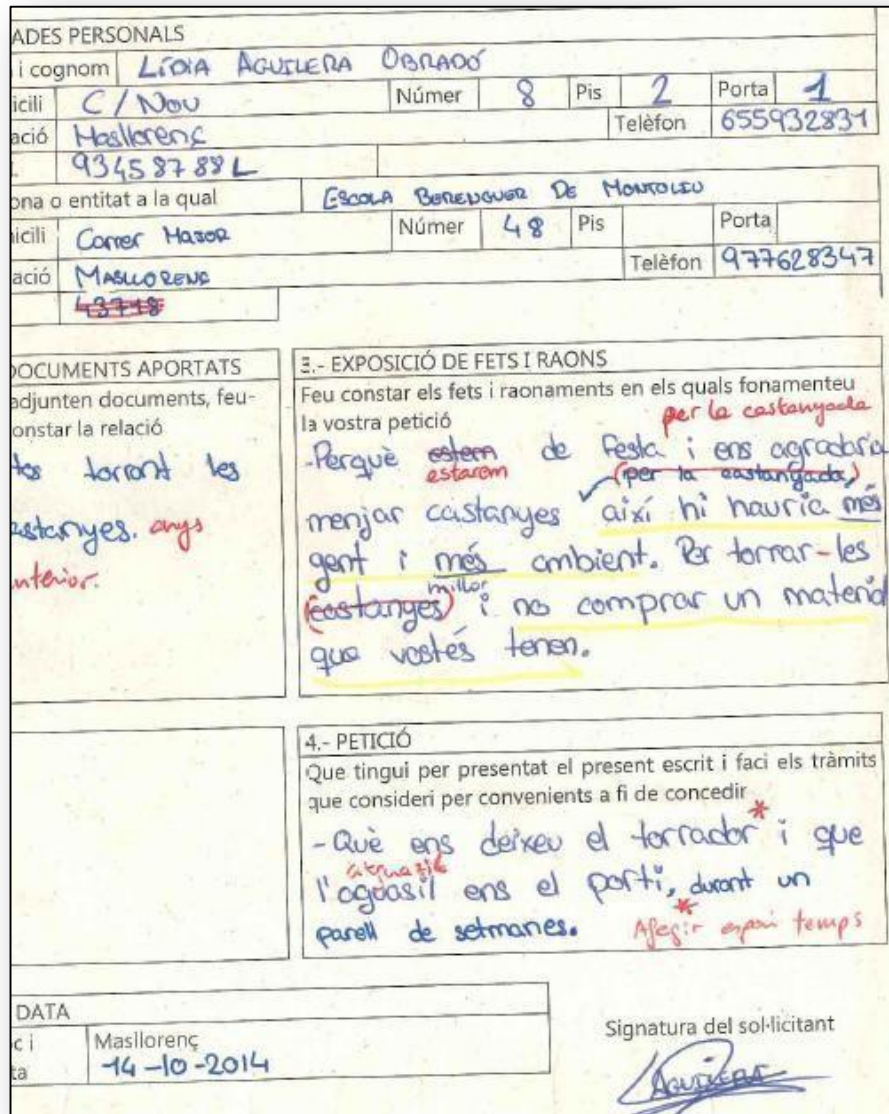 ADES PERSONALS
i cognom LÍDIA AGUILERA OBRADÓ
icili C/ Nou Número 8 Pis 2 Porta 1
ació Masllorenç Telèfon 655932831
93458788L
ona o entitat a la qual ESCOLA BERENGUER DE MONTOLIU
icili Carrer MAJOR Númer 48 Pis Porta
ació MASLLORENÇ Telèfon 977628347
43718
DOCUMENTS APORTATS
adjunten documents, feu-
onstar la relació
tos torrant les
astanyes. anys
anterior.
3.- EXPOSICIÓ DE FETS I RAONS
Feu constar els fets i raonaments en els quals fonamenteu
la vostra petició
per la castanyada
-Perquè estem de festa i ens agradaria
estarem (per la castanyada,)
menjar castanyes així hi hauria més
gent i més ambient. Per torrar-les
millor
(castanyes) i no comprar un material
que vostés tenen.
4.- PETICIÓ
Que tingui per presentat el present escrit i faci els tràmits
que consideri per convenients a fi de concedir
- Què ens deixeu el torrador* i que
l'agoasil ens el porti, durant un
parell de setmanes. * Afegir temps
DATA
c i Masllorenç
ta 14-10-2014
Signatura del sol·licitant
AGUILERA